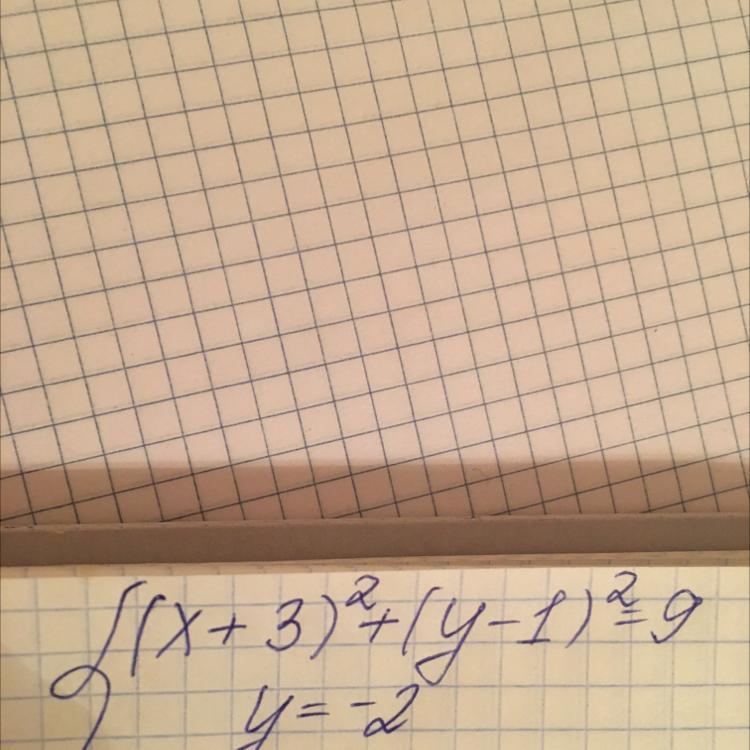 {(x+3)²+(y-1)²=9
y=-2